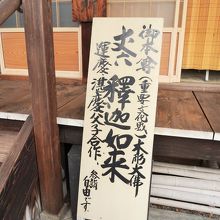 御本尊
(重要文化財)木彫大佛
丈六釋迦如来
運慶湛慶父子合作、
参観自由です。